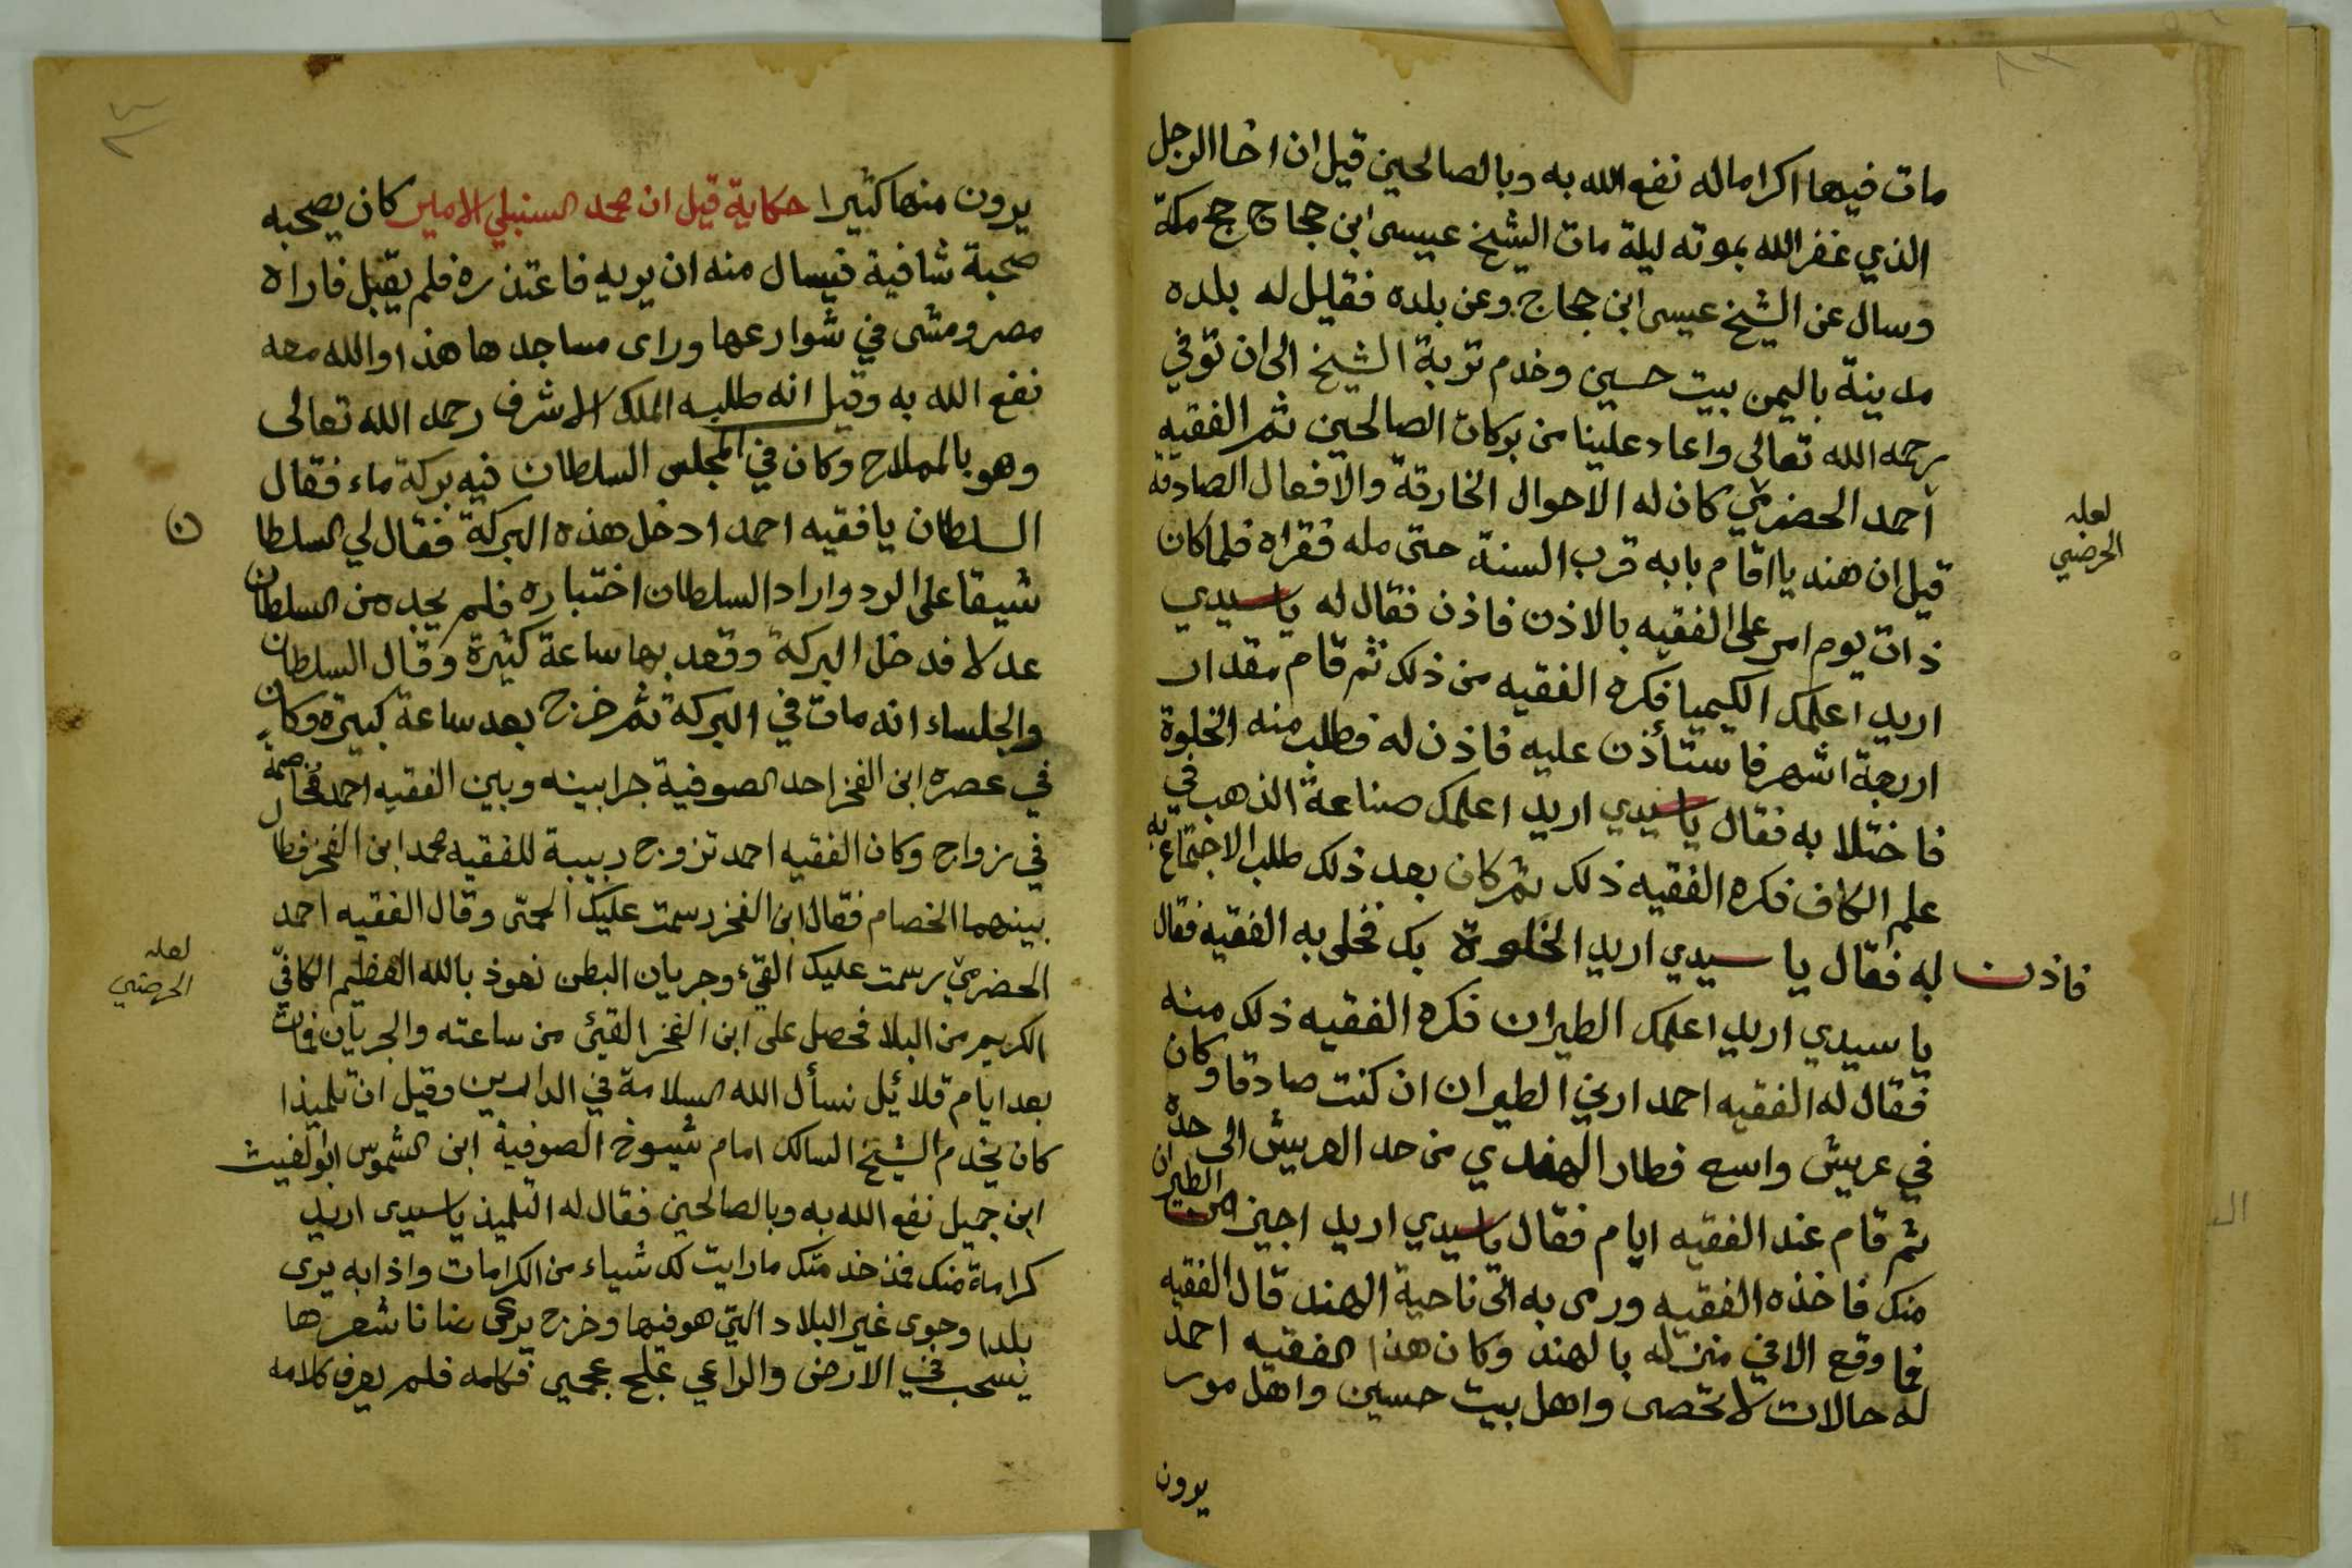 مات فيها اكراما له نفع الله به وبالصالحين قيل ان اخا الرجل
الذي غفر الله بموته ليلة مات الشيخ عيسى ابن حجاج حج مكة
وسال عن الشيخ عيسى ابن حجاج وعن بلده فقليل له بلده
مدينة باليمن بيت حسين وخدم تربة الشيخ الى ان توفي
رحمه الله تعالى واعاد علينا من بركات الصالحين ثم الفقيه
احمد الحضرمي كان له الاحوال الخارقة والافعال الصادقة
لعله
الحرضي
قيل ان هنديا اقام بابه قرب السنة حتى مله فقراه فلما كان
ذات يوم امر على الفقيه بالاذن فاذن فقال له يا سيدي
اريد اعلمك الكيميا فكره الفقيه من ذلك ثم قام مقدار
اربعة اشهر فاستأذن عليه فاذن له فطلب منه الخلوة
فاختلا به فقال يا سيدي اريد اعلمك صناعة الذهب في
علم الكاف فكره الفقيه ذلك ثم كان بعد ذلك طلب الاجتماع به
فاذن له فقال يا سيدي اريد الخلوة بك فخلى به الفقيه فقال
يا سيدي اريد اعلمك الطيران فكره الفقيه ذلك منه
فقال له الفقيه احمد ارني الطيران ان كنت صادقا وكان
في عريش واسع فطار الهندي من حد العريش الى حده
ثم قام عند الفقيه ايام فقال يا سيدي اريد اجيز من الطيران
منك فاخذه الفقيه ورمى به الى ناحية الهند قال الفقيه
فما وقع الا في منزله بالهند وكان هذا الفقيه احمد
له حالات لا تحصى واهل بيت حسين واهل مور
يرون
يرون منها كثيرا حكاية قيل ان محمد السنبلي الامير كان يصحبه
صحبة شافية فيسال منه ان يريه فاعتذره فلم يقبل فاراه
مصر ومشى في شوارعها وراى مساجدها هذا والله معه
نفع الله به وقيل انه طلبه الملك الاشرف رحمه الله تعالى
وهو بالمملاح وكان في المجلس السلطان فيه بركة ماء فقال
السلطان يا فقيه احمد ادخل هذه البركة فقال لي السلطا
ن
شيقا على الرد واراد السلطان اختباره فلم يجده من السلطان
عدلا فدخل البركة وقعد بها ساعة كثيرة وقال السلطان
والجلساء انه مات في البركة ثم خرج بعد ساعة كبيرة وكان
في عصره ابن الفخر احد الصوفية جرا بينه وبين الفقيه احمد مخاصمة
في زواج وكان الفقيه احمد تزوج ربيبة للفقيه محمد ابن الفخر فطال
بينهما الخصام فقال ابن الفخر رسمت عليك الحمى وقال الفقيه احمد
لعله
الحرضي
الحضرمي رسمت عليك القيء وجريان البطن نعوذ بالله العظيم الكافي
الكريم من البلا فحصل على ابن الفخر القيئ من ساعته والجريان فمات
بعد ايام قلائل نسأل الله السلامة في الدارين وقيل ان تلميذا
كان يخدم الشيخ السالك امام شيوخ الصوفية ابن الشموس ابو الغيث
ابن جميل نفع الله به وبالصالحين فقال له التلميذ يا سيدى اريد
كرامة منك فذ خدمتك ما رايت لك شياء من الكرامات واذا به يرى
بلدا وجوى غير البلاد التي هو فيها وخرج يرعى ضانا شعرها
يسحب في الارض والراعي علج عجمي فكلمه فلم يعرف كلامه